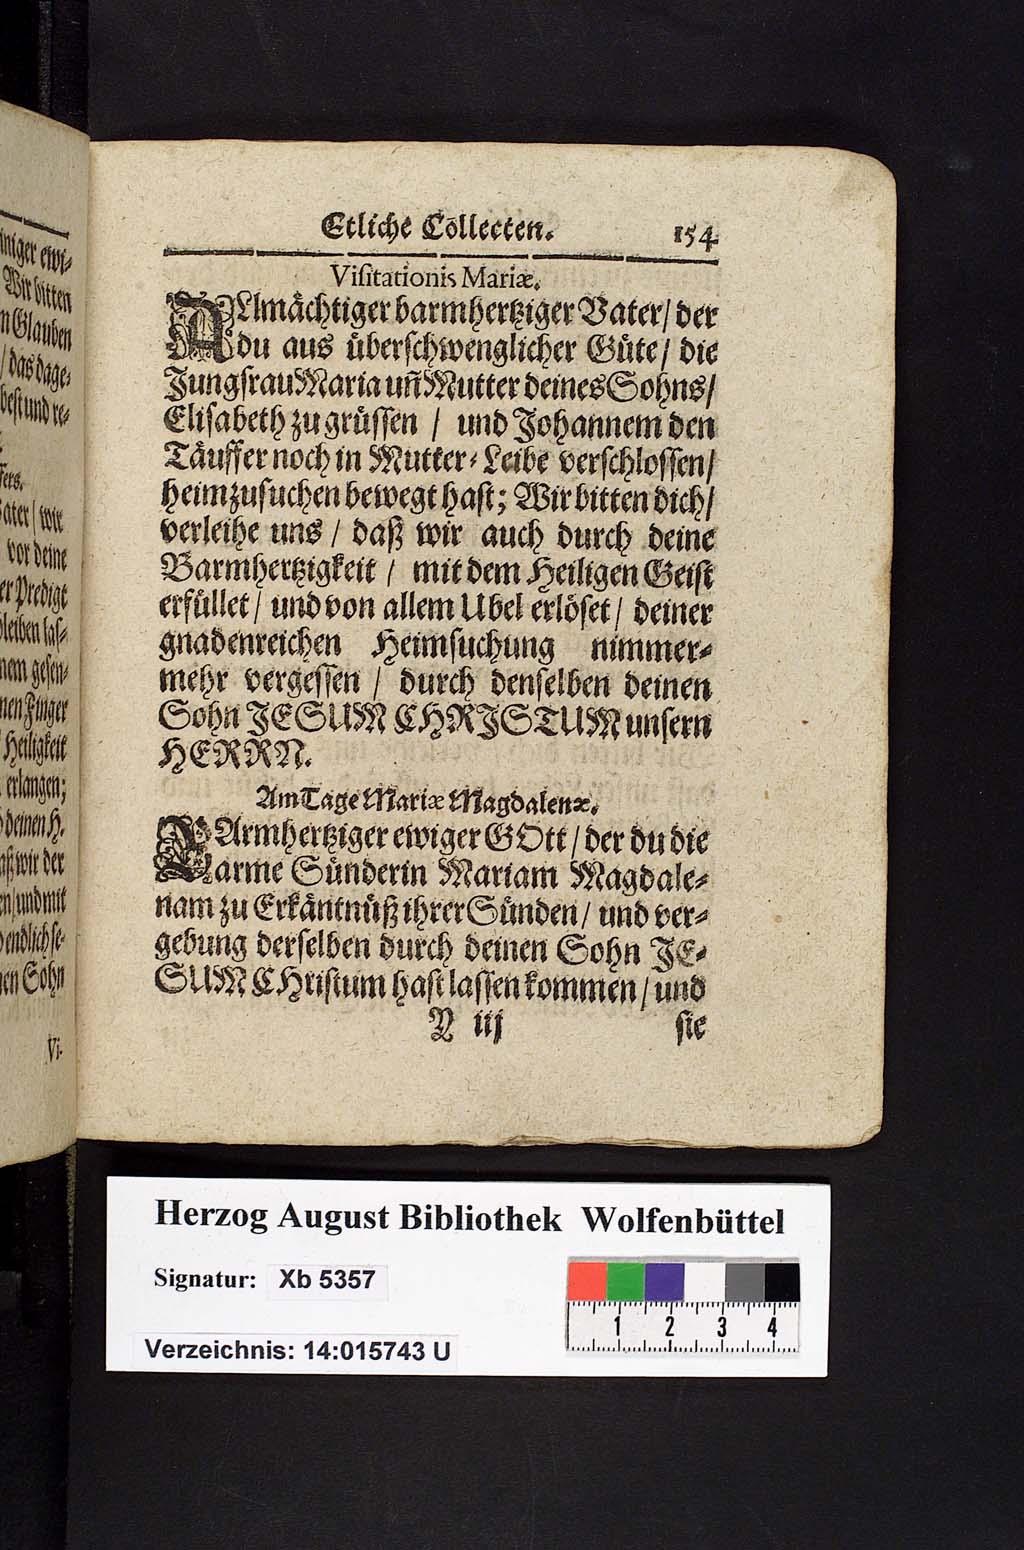 iniger ewi-
Wir bitten
n Glauben
/ das dage-
best und re-
fers.
Vater / wir
vor deine
er Predigt
bleiben las-
nem gesen-
nen Finger
Heiligkeit
erlangen;
deinen H.
aß wir der
en / und mit
endlich se-
nen Sohn
Vi-
Etliche Collecten. 154
Visitationis Mariæ.
ALlmächtiger barmhertziger Vater / der
du aus überschwenglicher Güte / die
Jungfrau Maria uñ Mutter deines Sohns /
Elisabeth zu grüssen / und Johannem den
Täuffer noch in Mutter-Leibe verschlossen /
heimzusuchen bewegt hast; Wir bitten dich /
verleihe uns / daß wir auch durch deine
Barmhertzigkeit / mit dem Heiligen Geist
erfüllet / und von allem Ubel erlöset / deiner
gnadenreichen Heimsuchung nimmer-
mehr vergessen / durch denselben deinen
Sohn JESUM CHRISTUM unsern
HERRN.
Am Tage Mariæ Magdalenæ.
BArmhertziger ewiger GOtt / der du die
arme Sünderin Mariam Magdale-
nam zu Erkäntnüß ihrer Sünden / und ver-
gebung derselben durch deinen Sohn JE-
SUM CHristum hast lassen kommen / und
V iij sie
Herzog August Bibliothek Wolfenbüttel
Signatur: Xb 5357
Verzeichnis: 14:015743 U
1 2 3 4